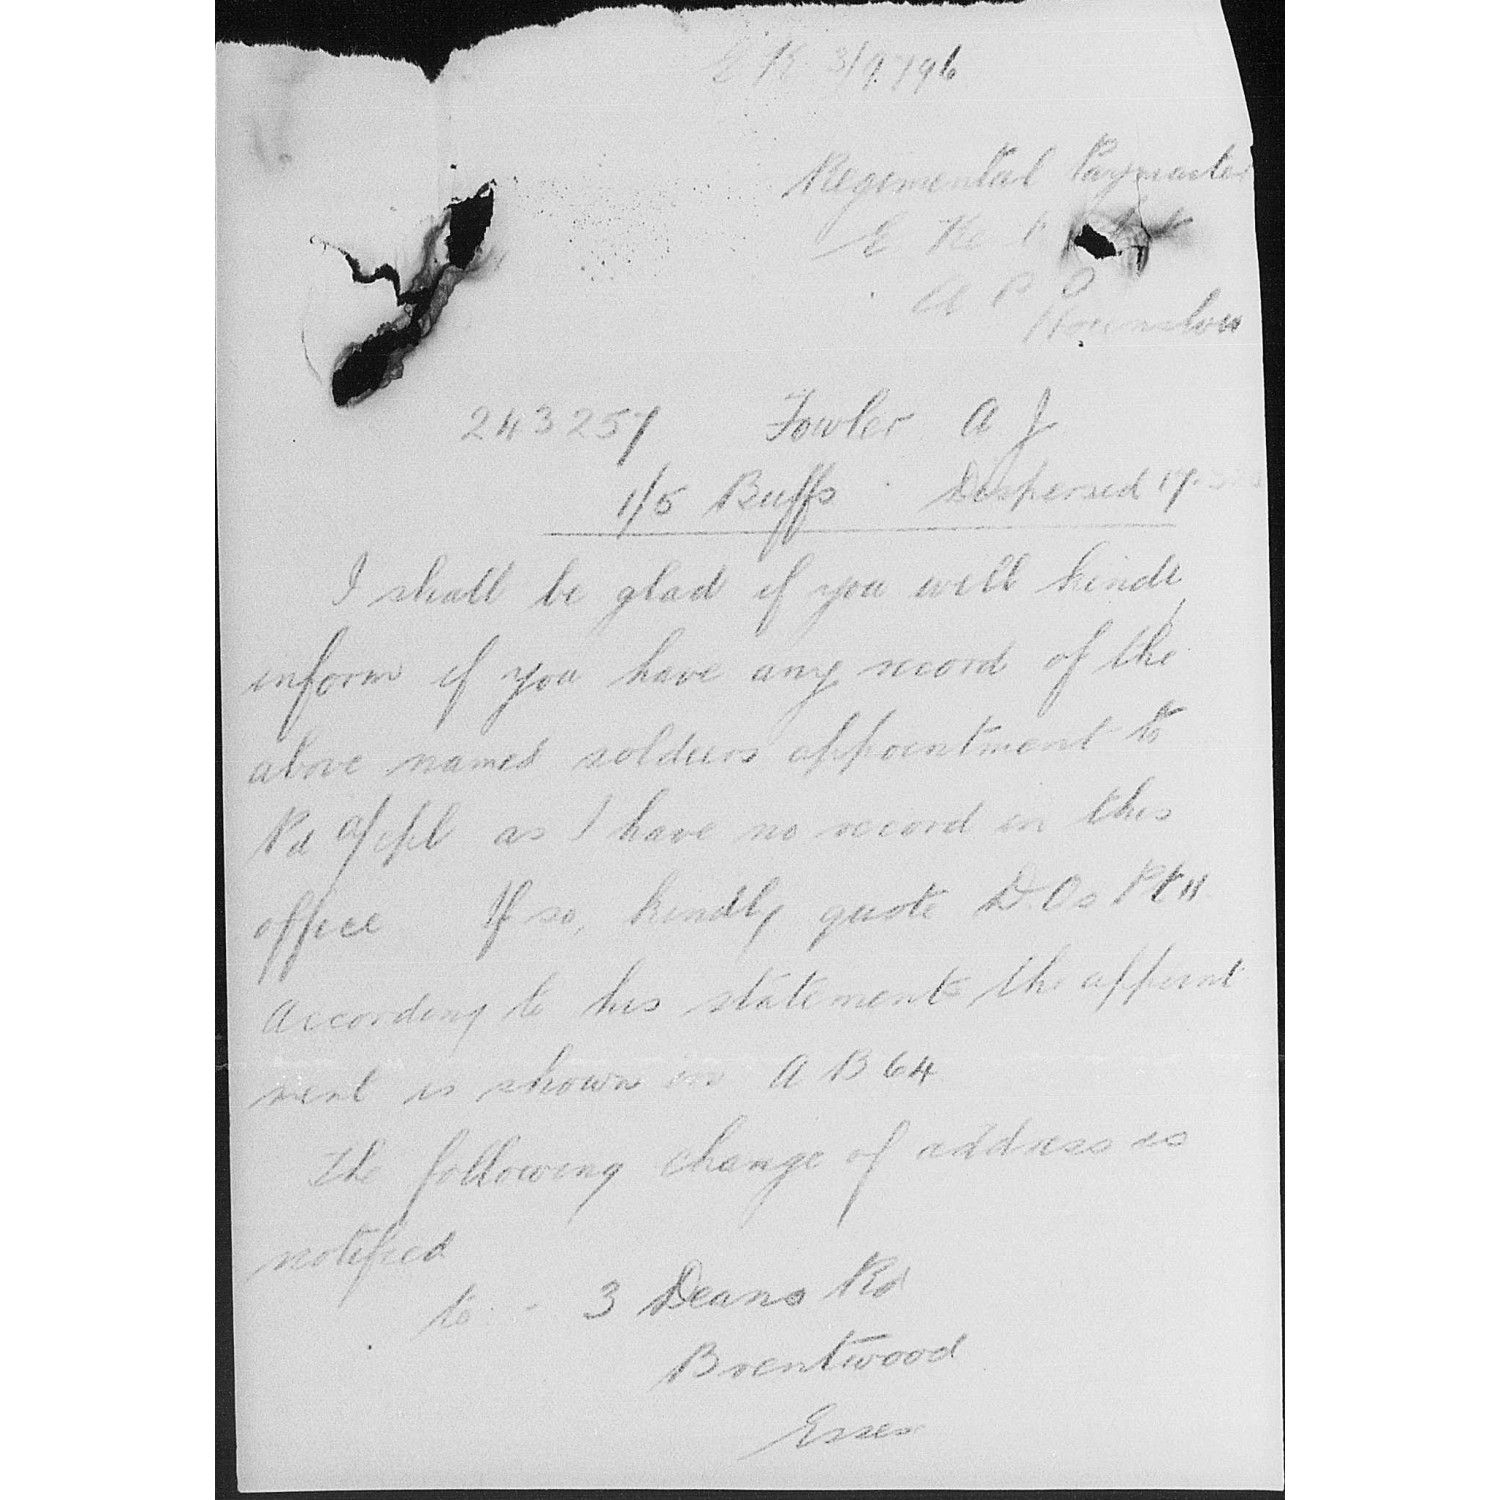 E K 3/9796
Regimental Paymaster
E Ke
A P O
Hounslow
243257 Fowler A J
1/5 Buffs Dispersed 17.
I shall be glad if you will kindly
inform if you have any record of the
above named soldiers appointment to
Pd a/cpl as I have no record in this
office If so, kindly quote D.Os Pt II
According to his statements the appoint
ment is shown in A B 64
The following change of address is
notified
to - 3 Deans Rd
Brentwood
Essex